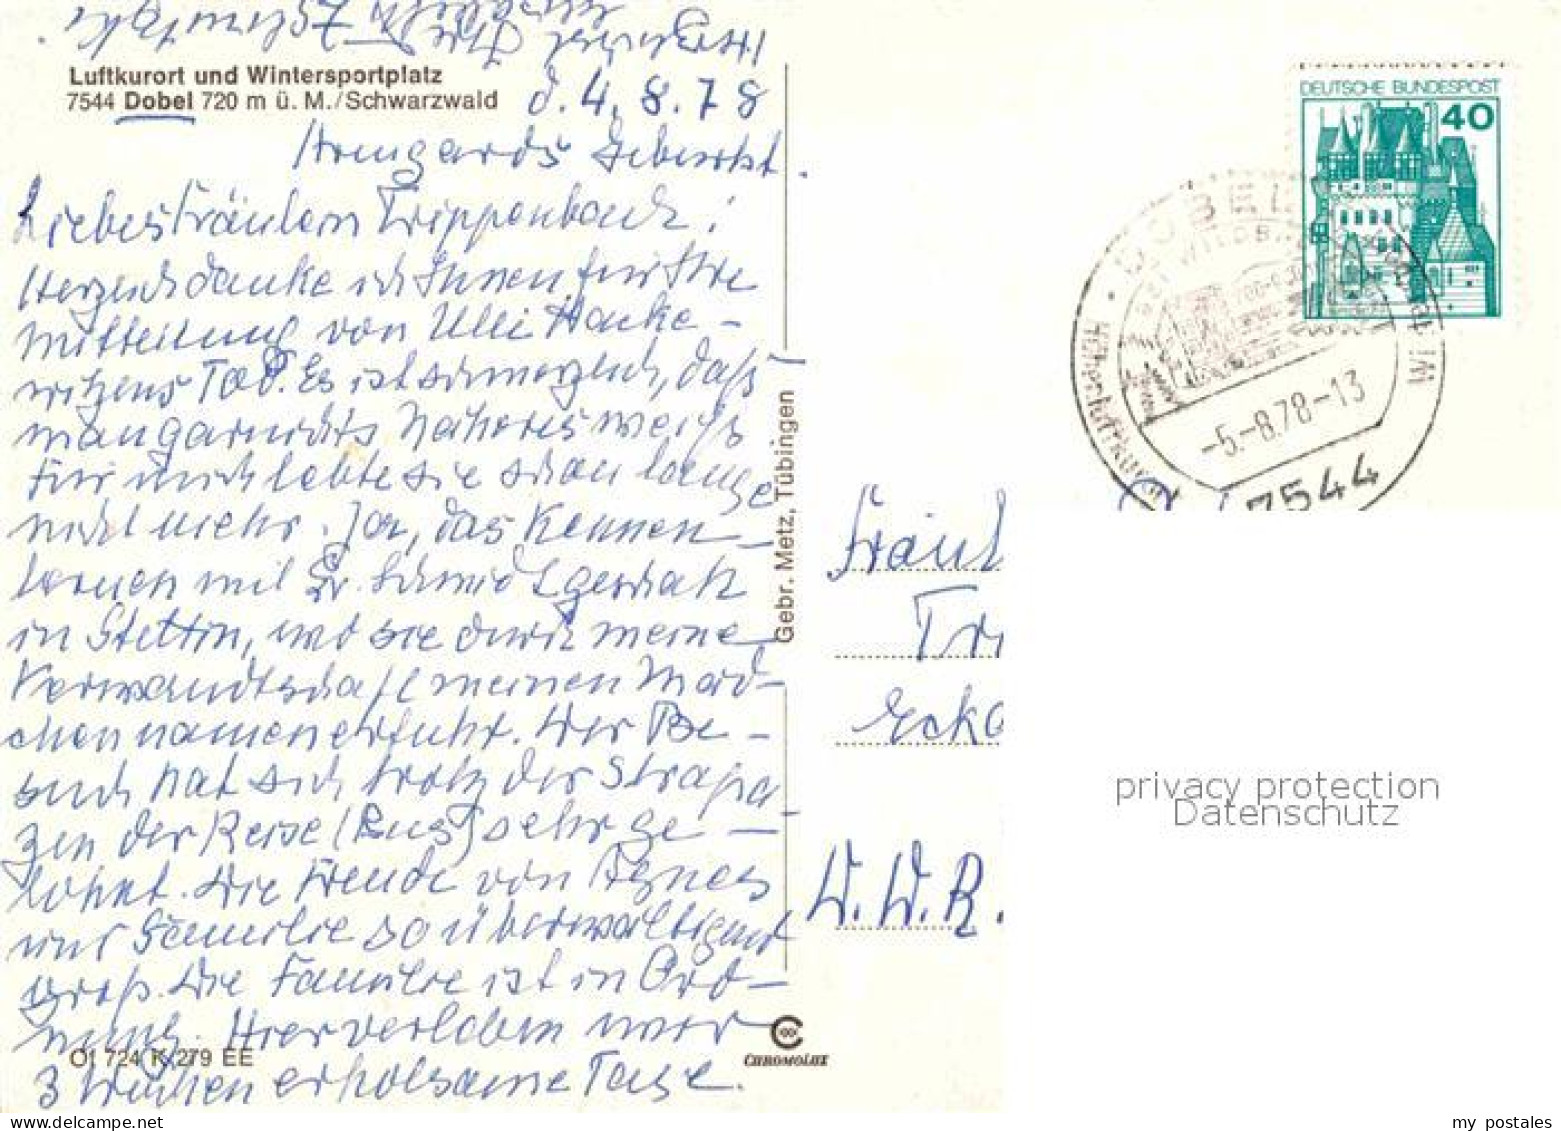 Luftkurort und Wintersportplatz
7544 Dobel 720 m ü. M./Schwarzwald
d. 4. 8. 78
Armgards Geburtst.
Liebes Fräulein Trippenbach!
Herzlich danke ich Ihnen für Ihre
Mitteilung von Ulli Hacke-
witzens Tod. Es ist schmerzlich, daß
man garnichts Näheres weiß
Für mich lebte sie schon lange
nicht mehr. Ja, das Kennen-
lernen mit Fr. Schmidt geschah
in Stettin, und sie durch meine
Verwandtschaft meinen Mäd-
chennamen erfuhr. Der Be-
such hat sich trotz der Strapa-
zen der Reise (Bus) sehr ge-
lohnt. Die Freude von Agnes
und Familie so überwältigend
groß. Die Familie ist in Ord-
nung. Hier verleben wir
3 Wochen erholsame Tage.
Ol 724 K 279 EE
Gebr. Metz, Tübingen
CHROMOLUX
DEUTSCHE BUNDESPOST
40
DOBEL
Höhenluftkurort
-5.-8.78-13
7544
Fräul
Tri
Ecka
W. W. R.
privacy protection
Datenschutz
my postales